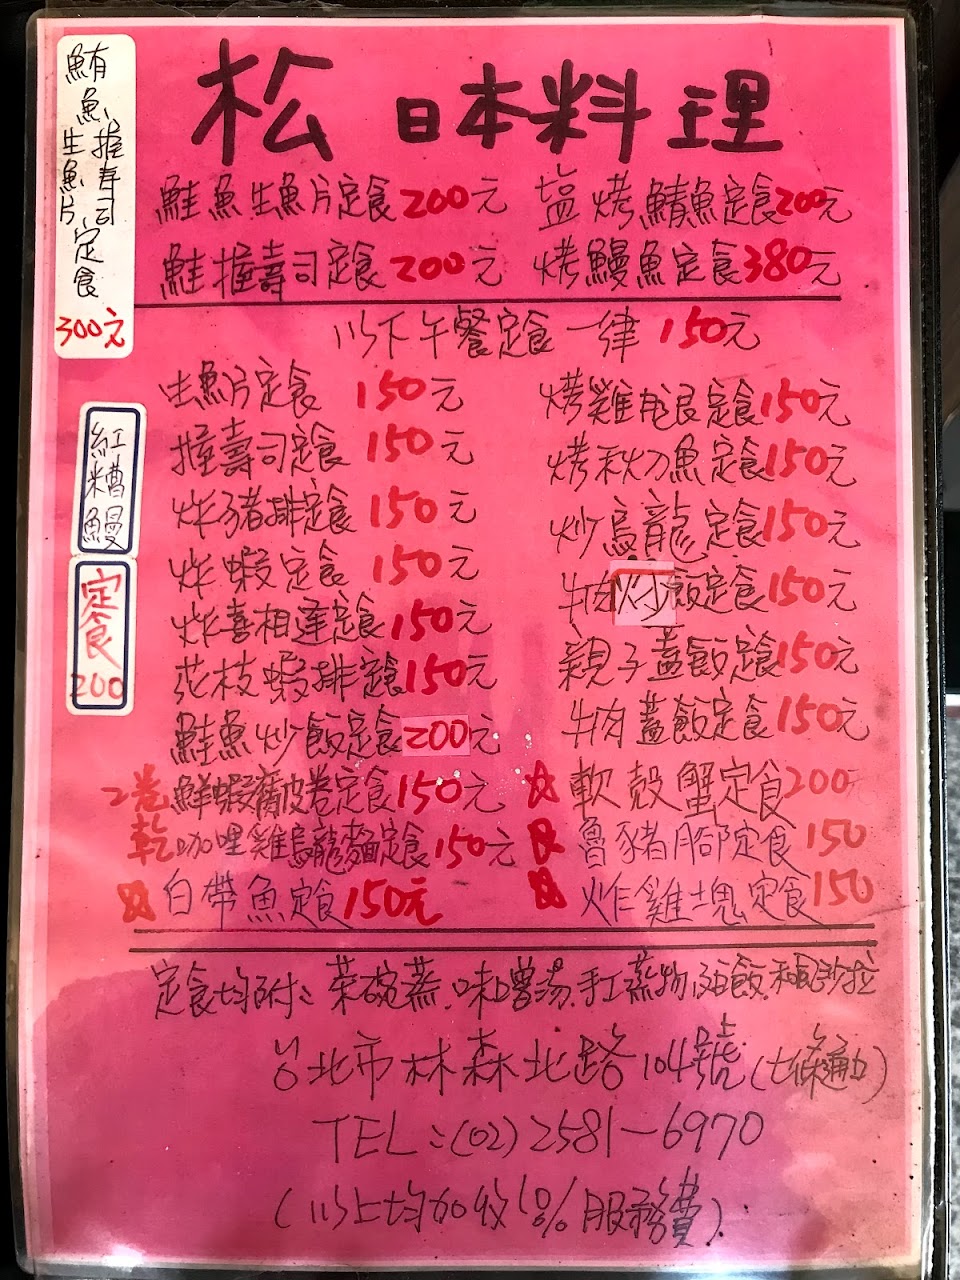 松 日本料理
鮪魚握壽司
生魚片定食
300元
鮭魚生魚片定食200元
塩烤鯖魚定食200元
鮭握壽司定食200元
烤鰻魚定食380元
以下午餐定食一律150元
紅糟鰻
定食
200
生魚片定食 150元
握壽司定食 150元
炸豬排定食 150元
炸蝦定食 150元
炸喜相逢定食150元
花枝蝦排定食150元
鮭魚炒飯定食200元
2卷 鮮蝦腐皮卷定食150元
乾 咖哩雞烏龍麵定食150元
☆白帶魚定食150元
烤雞腿定食150元
烤秋刀魚定食150元
炒烏龍定食150元
牛肉炒飯定食150元
親子蓋飯定食150元
牛肉蓋飯定食150元
☆軟殼蟹定食200元
☆魯豬腳定食150
☆炸雞塊定食150
定食均附:茶碗蒸.味噌湯.手工蒸物.白飯.和風沙拉
台北市林森北路104號(七條通口)
TEL:(02)2581-6970
(以上均加收10%服務費)